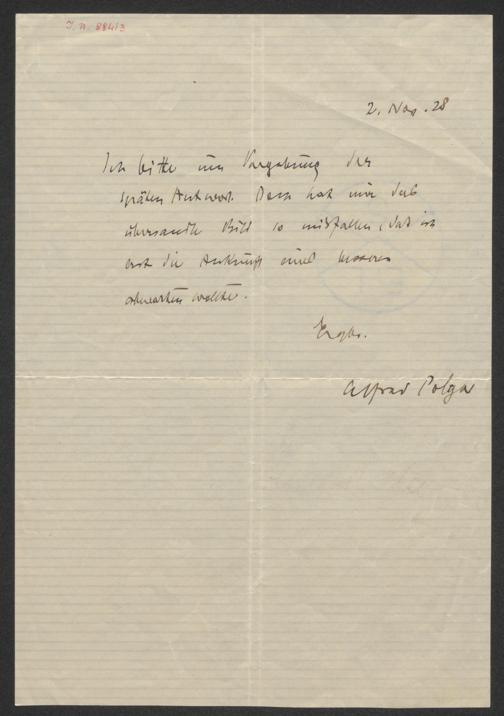 I. N. 88413
2. Nov. 28
Ich bitte um Vergebung der
späten Antwort. Doch hat mir das
übersandte Bild so mißfallen, daß ich
erst die Ankunft eines besseren
abwarten wollte.
Ergbn.
Alfred Polgar